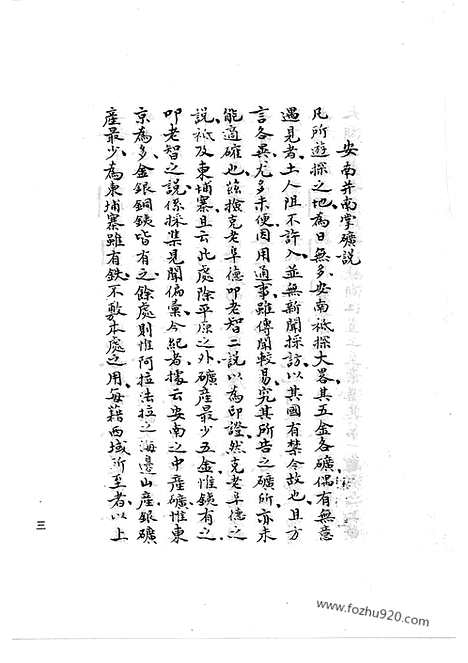 安南并南掌礦說
凡所遊探之地為日無多安南祗探大畧其五金各礦偶有無意
遇見者土人阻不許入並無新聞採訪以其國有禁令故也且方
言各異尤多未便因用通事雖傳聞較易究其所告之礦所亦未
能適確也茲撿克老阜德叩老智二說以為印證然克老阜德之
說祗及東埔寨且云此處除平原之外礦產最少五金惟鉄有之
叩老智之說係採集見聞偏彙今紀者據云安南之中產礦惟東
京為多金銀銅鉄皆有之餘處則惟阿拉法拉之海邊山產銀礦
產最少為東埔寨雖有鉄不敷本處之用每藉西域所至者以上
三
www.fozhu920.com